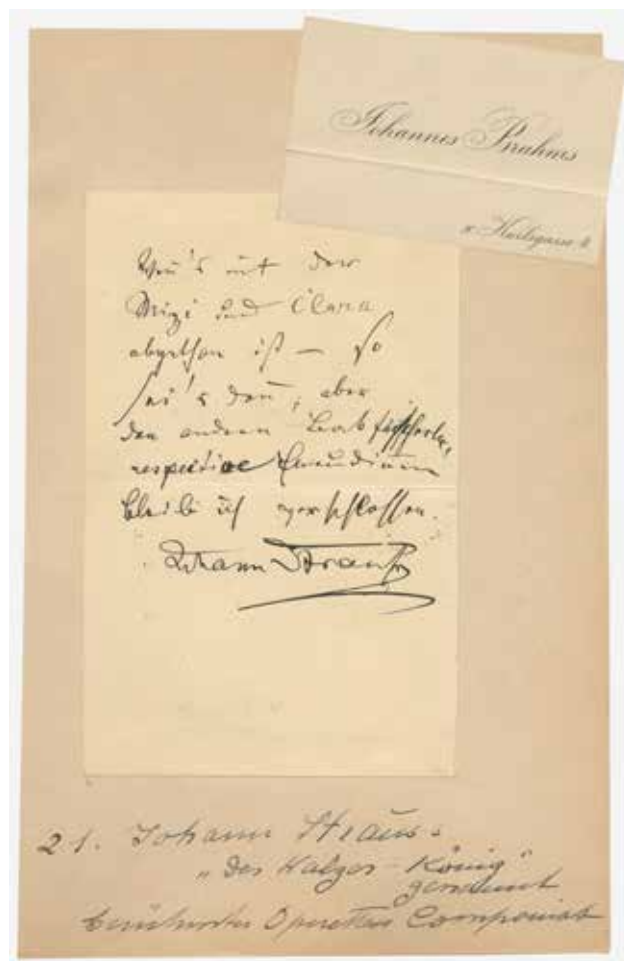 Johannes Brahms
Karlsgasse 4
Wen̄'s mit der
Mizi und Clara
abgethan ist — so
sei's den̄, aber
den andern
respective
bleibe ich verschlossen.
Johann Strauss
21. Johann Strauss
„Der Walzer-König"
genannt
berühmter Operetten Componist